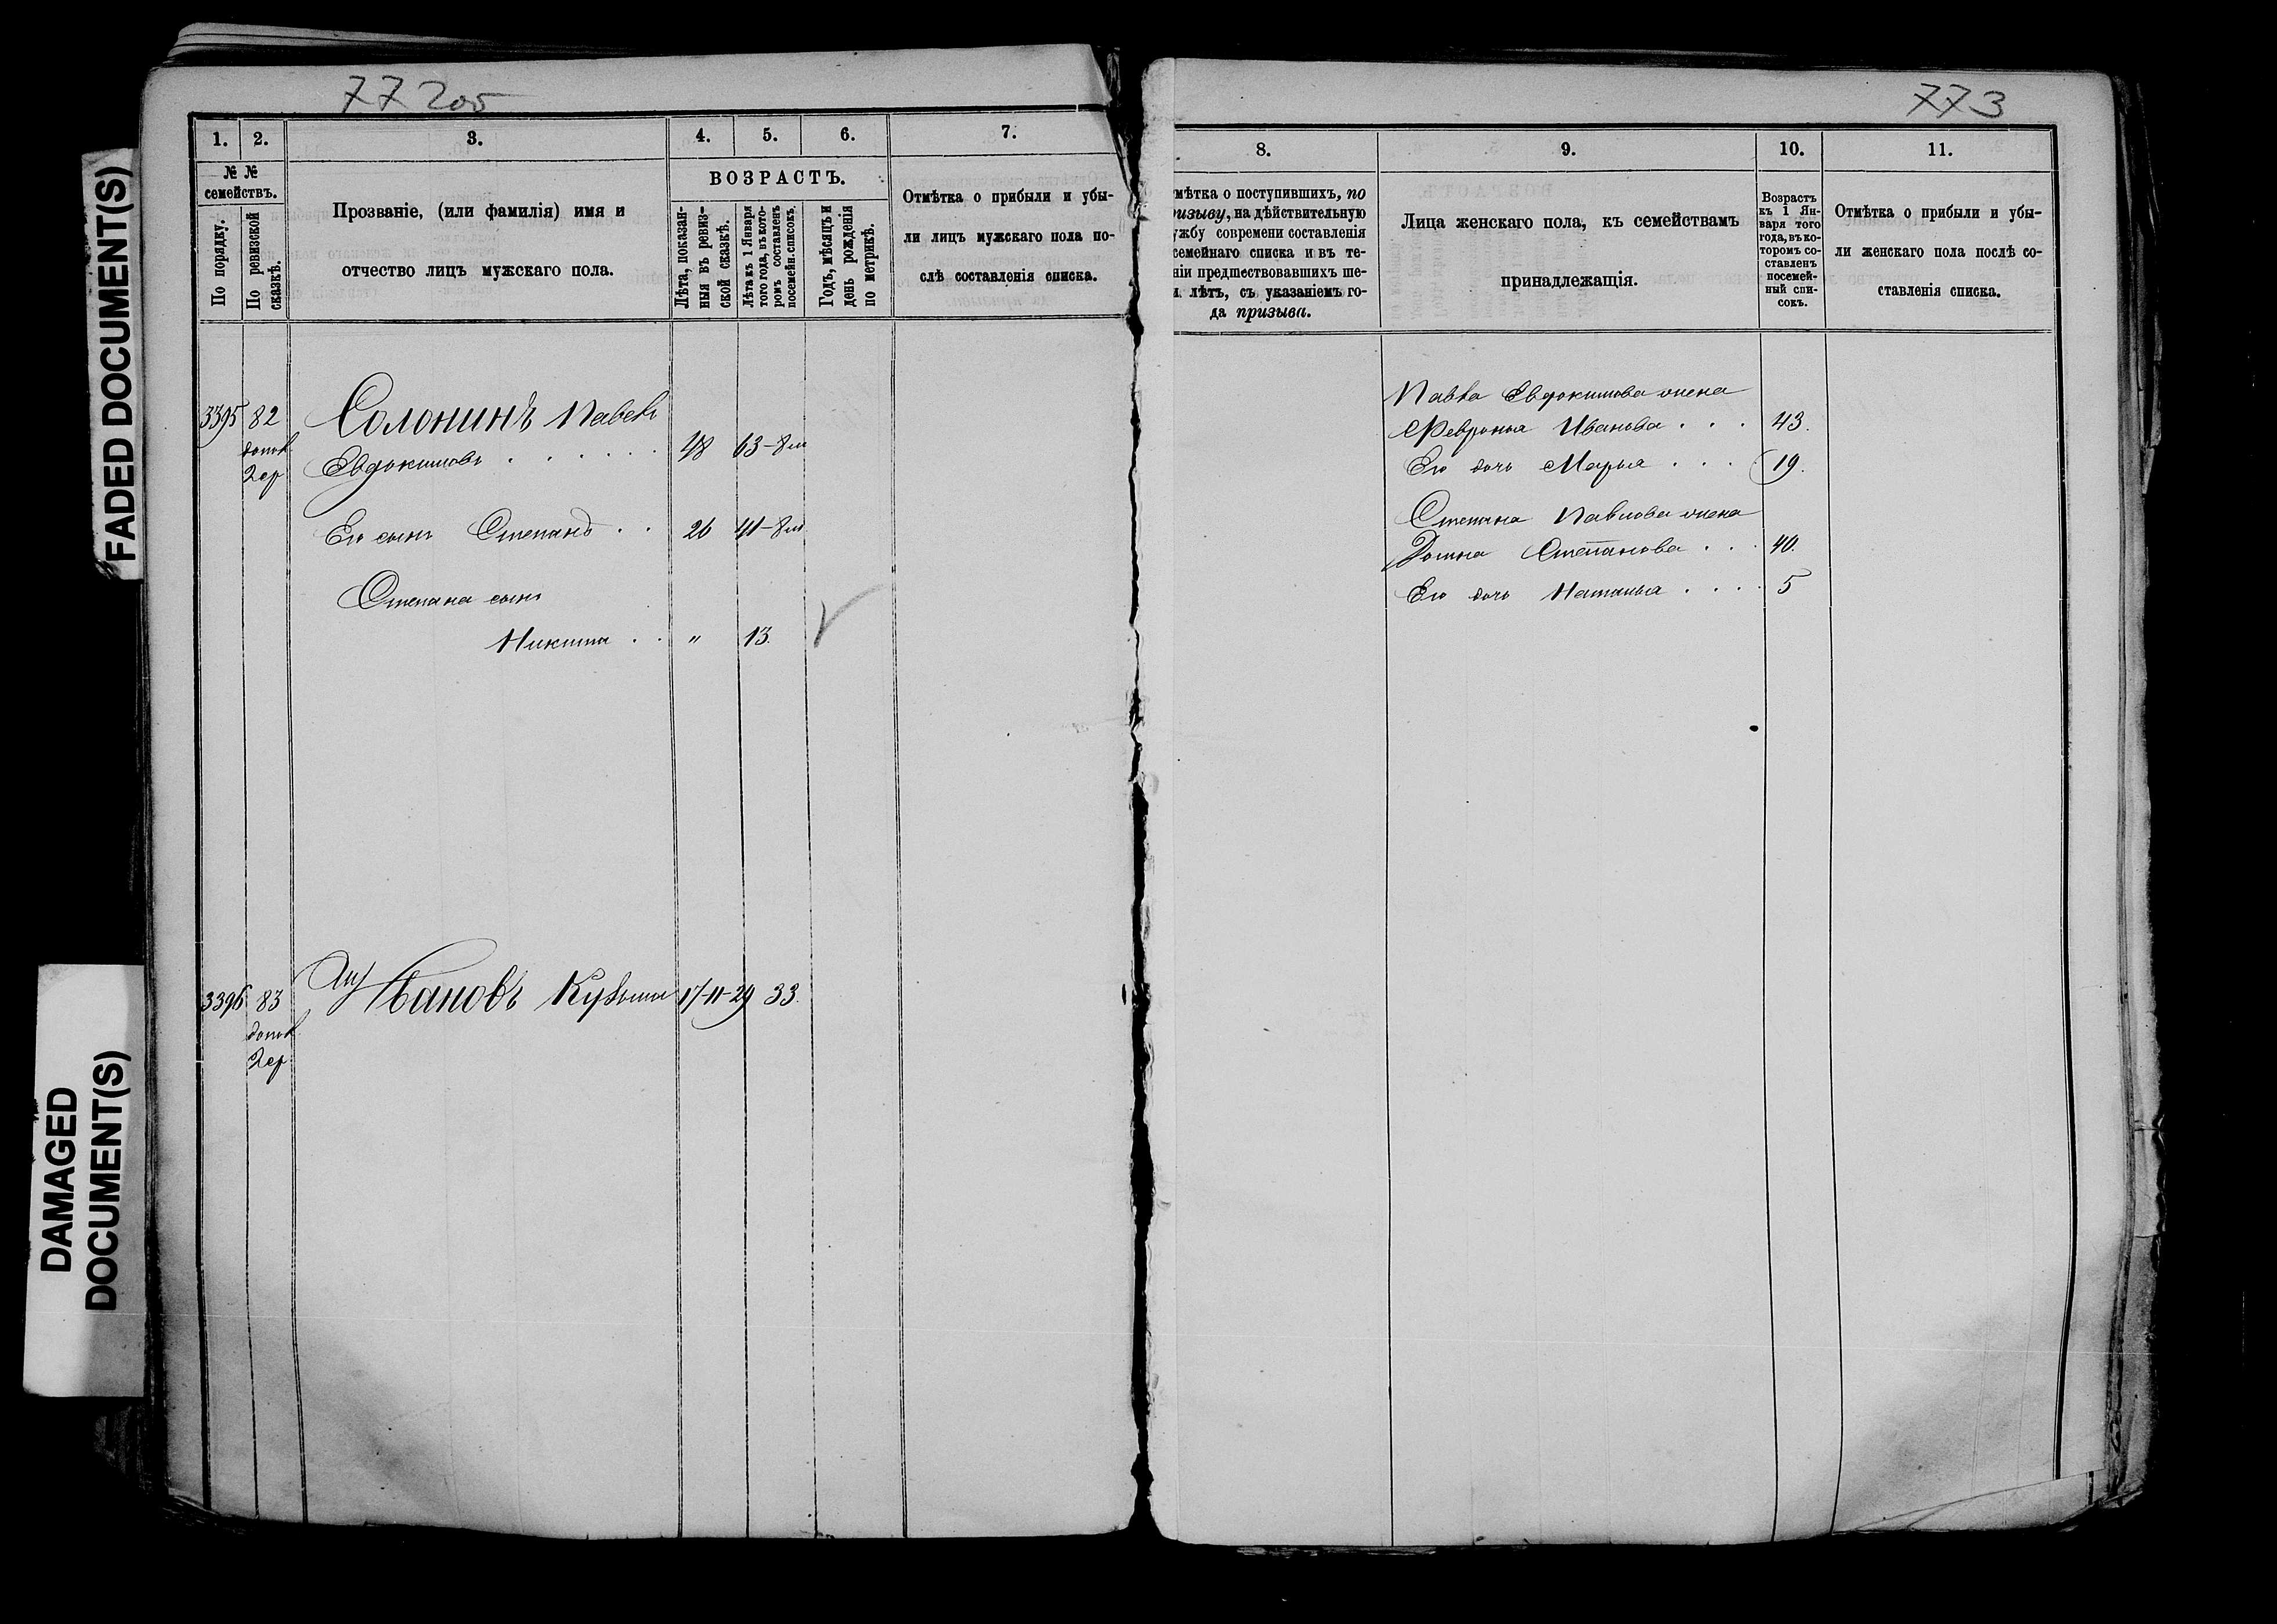 77 205
773
FADED DOCUMENT(S)
DAMAGED
DOCUMENT(S)
1. 2. 3. 4. 5. 6. 7.
№ №
семействъ.
По порядку.
По ревизской
сказкѣ.
Прозваніе, (или фамилія) имя и
отчество лицъ мужскаго пола.
ВОЗРАСТЪ.
Лѣта, показан-
ныя въ ревиз-
ской сказкѣ.
Лѣта къ 1 Января
того года, въ кото-
ромъ составленъ
посемейн. списокъ.
Годъ, мѣсяцъ и
день рожденія
по метрикѣ.
Отмѣтка о прибыли и убы-
ли лицъ мужскаго пола по-
слѣ составленія списка.
3395 82 Солонинъ Павелъ
допол
2 ср
Евдокимовъ . . . . . . 48 63-8м
Его сынъ Степанъ . . 26 41-8м
Степана сынъ
Никита . . " 13.
3396 83 Ивановъ Кузьма 17-11-29 33.
допол
2 ср
8. 9. 10. 11.
мѣтка о поступившихъ, по
ризыву, на дѣйствительную
ужбу современи составленія
семейнаго списка и въ те-
ніи предшествовавшихъ ше-
и лѣтъ, съ указаніемъ го-
да призыва.
Лица женскаго пола, къ семействамъ
принадлежащія.
Возрастъ
къ 1 Ян-
варя того
года, въ ко-
торомъ со-
ставленъ
посемей-
ный спи-
сокъ.
Отмѣтка о прибыли и убы-
ли женскаго пола послѣ со-
ставленія списка.
Павла Евдокимова жена
Февронья Иванова . . . 43.
Его дочь Марья . . . 19.
Степана Павлова жена
Домна Степанова . . . 40.
Его дочь Наталья . . . . 5